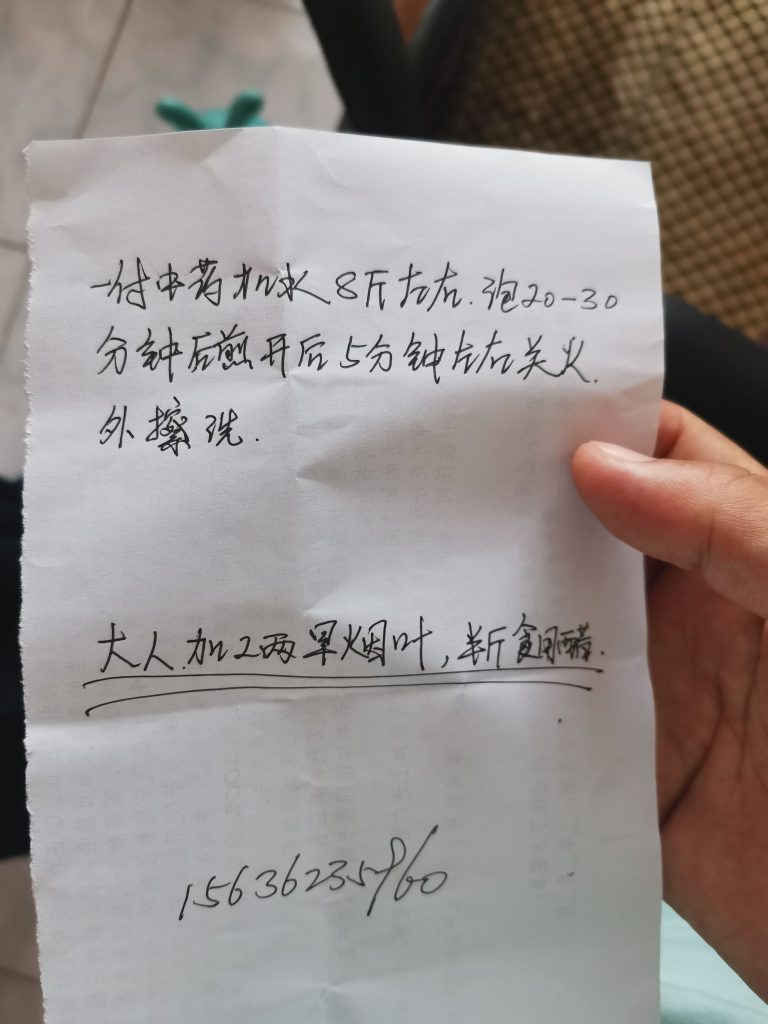 一付中药加水8斤左右.泡20-30
分钟后煎开后5分钟左右关火.
外擦洗.
大人.加2两旱烟叶,半斤食用醋.
15636235960